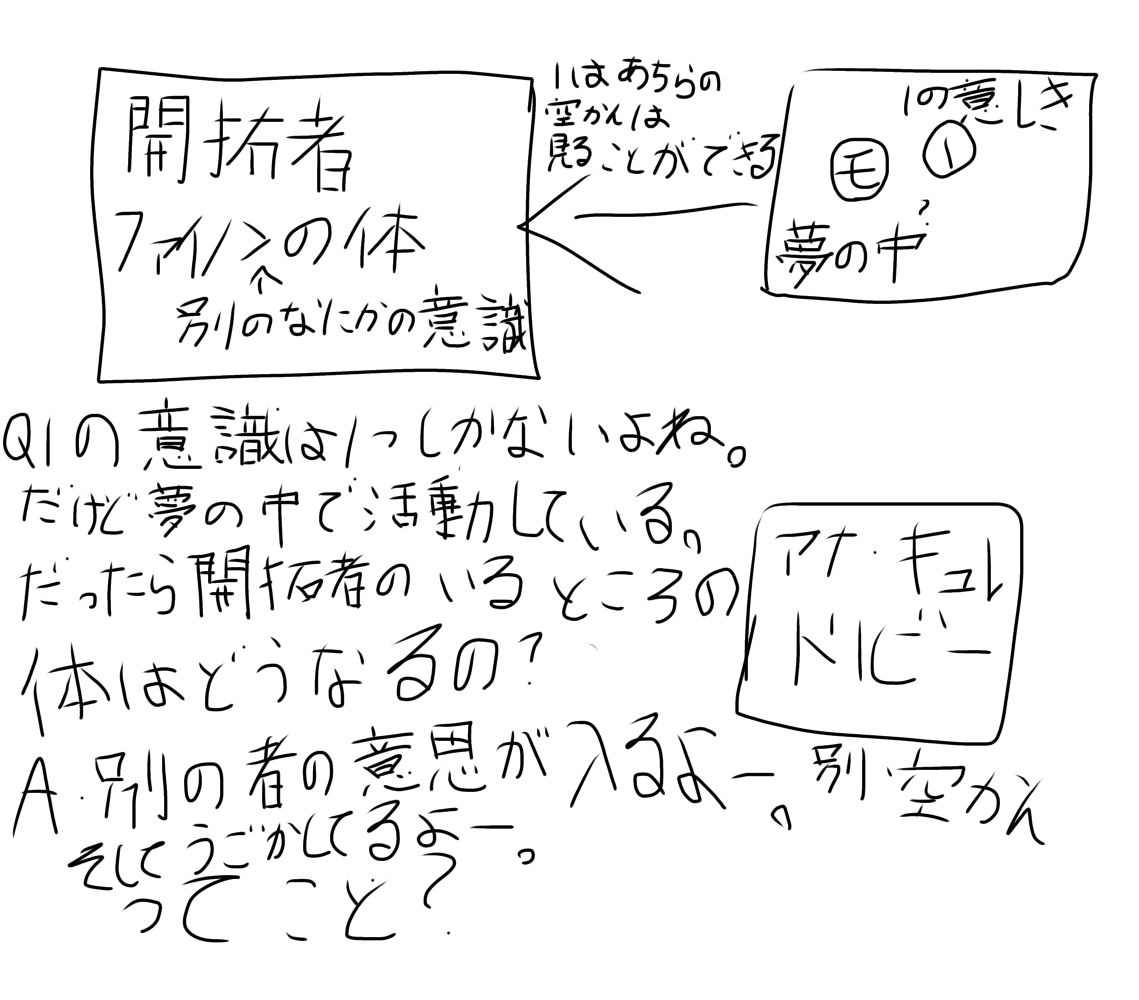 開拓者
ファイノンの体
↑
別のなにかの意識
1はあちらの
空かんは
見ることができる
1の意しき
モ 1
?
夢の中
Q1の意識は1つしかないよね。
だけど夢の中で活動している。
だったら開拓者のいるところの
体はどうなるの?
A.別の者の意思が入るよー。
そしてうごかしてるよー。
ってこと?
アナ・キュレ
ドリビー
別空かん